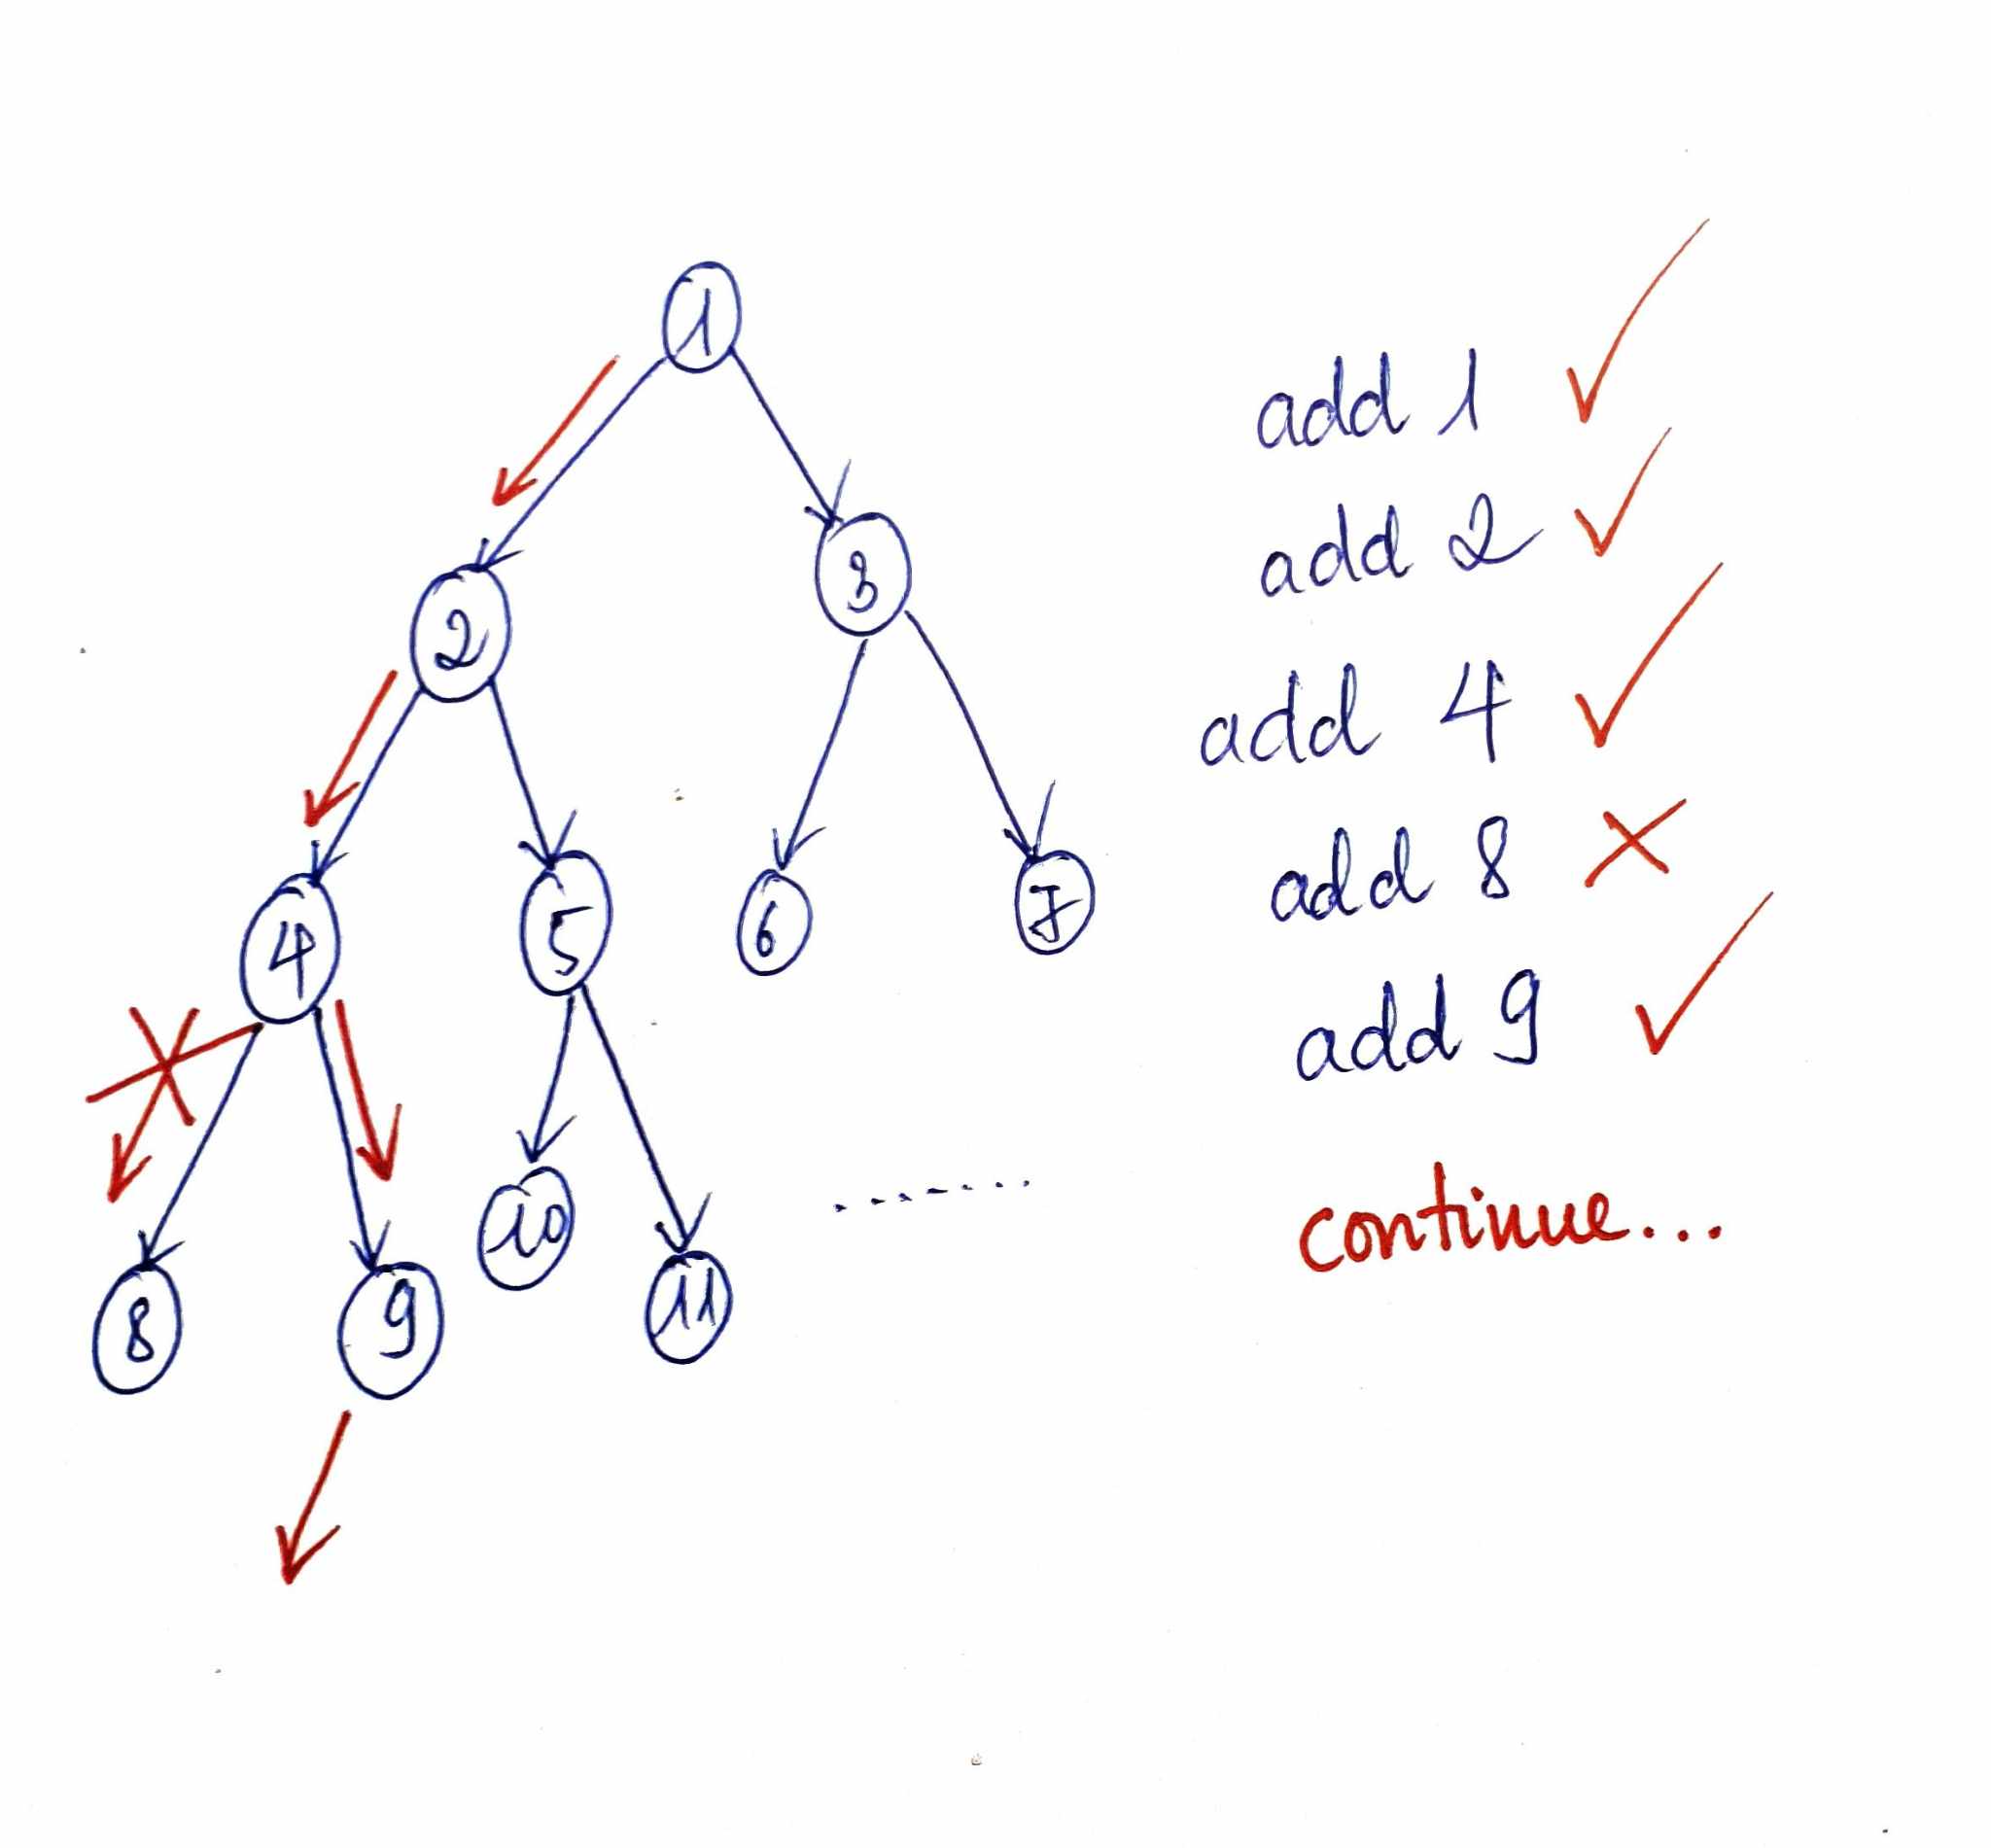 1
2
3
4
5
6
7
8
9
10
11
add 1
add 2
add 4
add 8
add 9
continue...